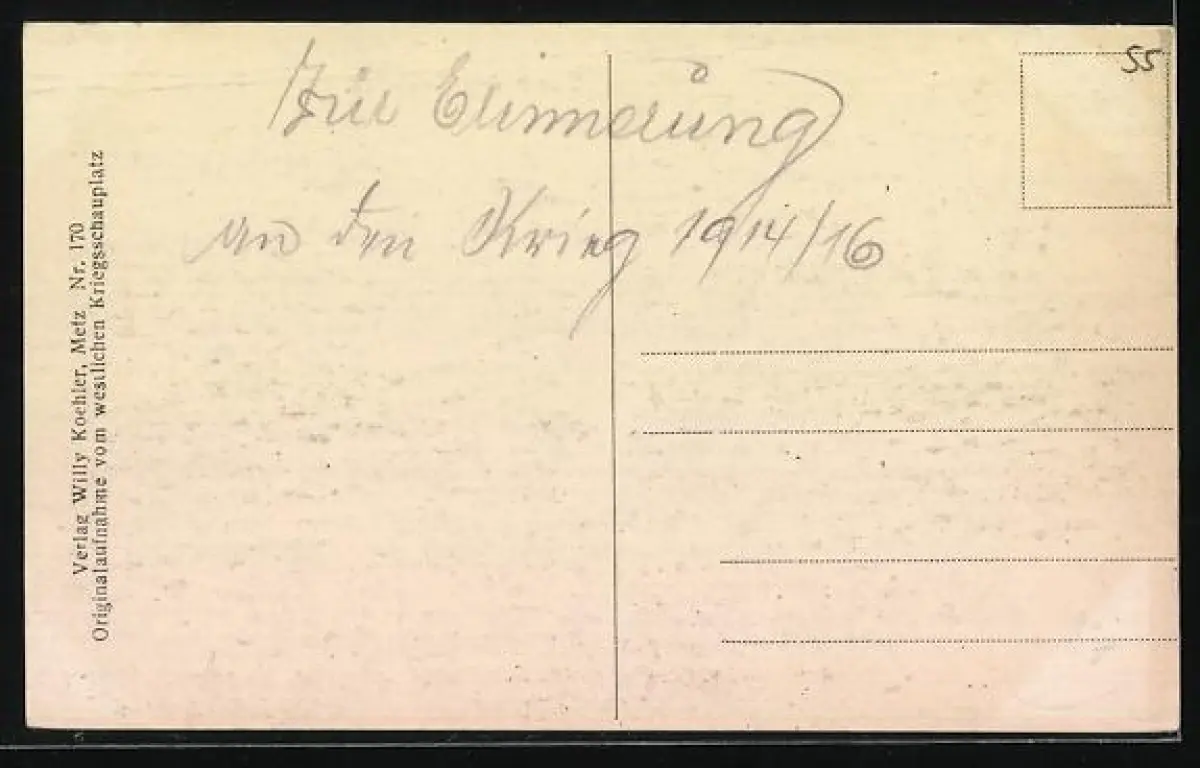 Zur Erinnerung
an den Krieg 1914/16
55
Verlag Willy Koehler, Metz Nr. 170
Originalaufnahme vom westlichen Kriegsschauplatz